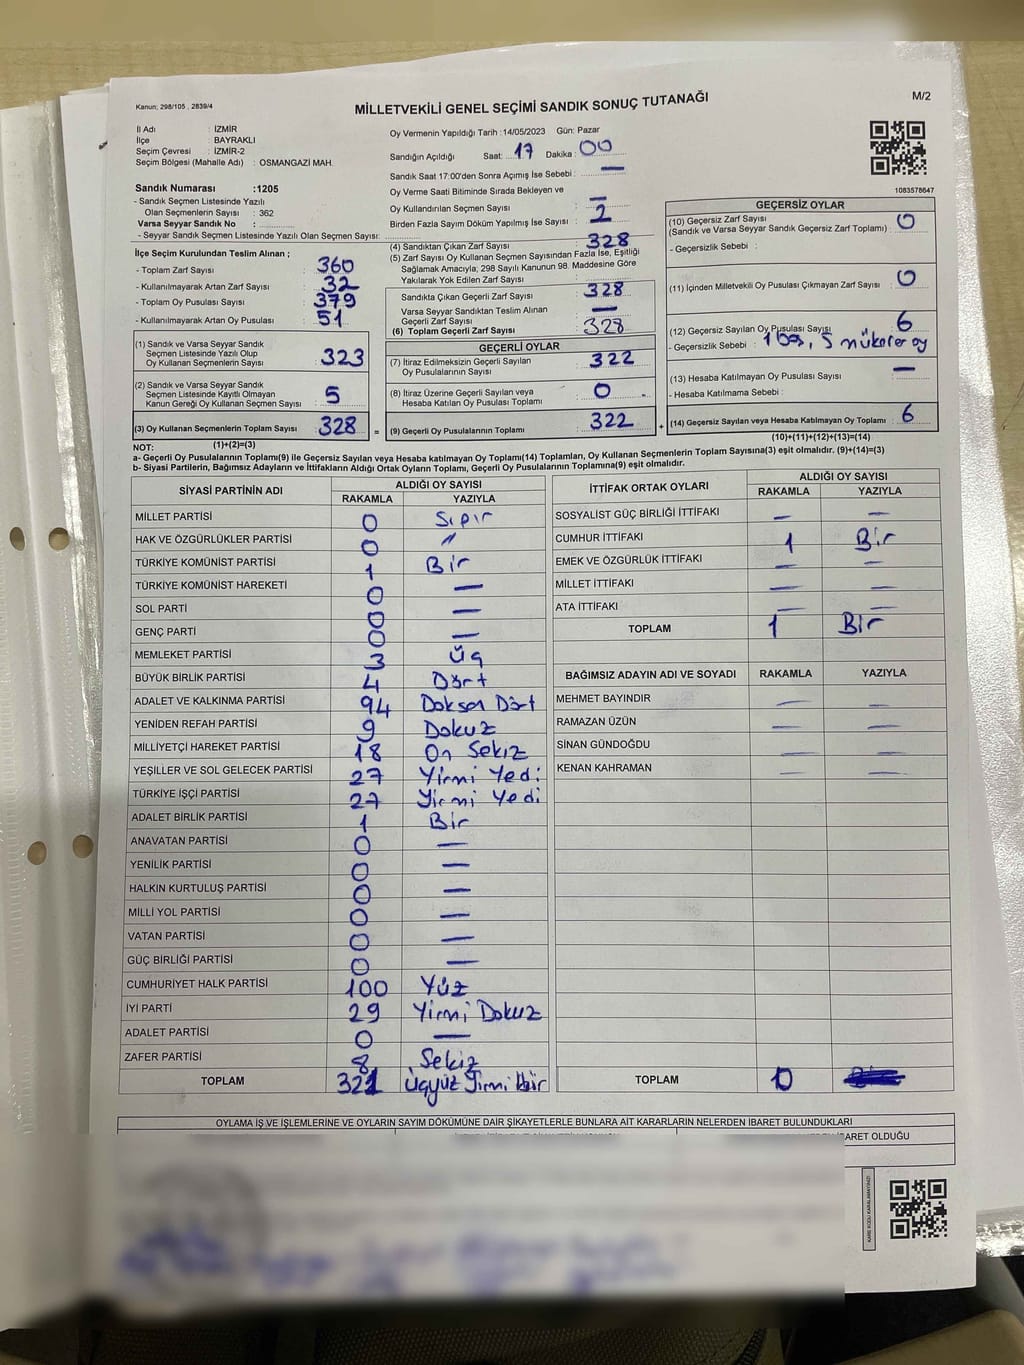 Kanun: 298/105 , 2839/4
MİLLETVEKİLİ GENEL SEÇİMİ SANDIK SONUÇ TUTANAĞI
M/2
İl Adı : İZMİR
İlçe : BAYRAKLI
Seçim Çevresi : İZMİR-2
Seçim Bölgesi (Mahalle Adı) : OSMANGAZİ MAH.
Sandık Numarası :1205
- Sandık Seçmen Listesinde Yazılı
Olan Seçmenlerin Sayısı : 362
Varsa Seyyar Sandık No :
- Seyyar Sandık Seçmen Listesinde Yazılı Olan Seçmen Sayısı:
Oy Vermenin Yapıldığı Tarih :14/05/2023 Gün: Pazar
Sandığın Açıldığı Saat: 17 Dakika : 00
Sandık Saat 17:00'den Sonra Açımış İse Sebebi : —
Oy Verme Saati Bitiminde Sırada Bekleyen ve
Oy Kullandırılan Seçmen Sayısı : —
Birden Fazla Sayım Döküm Yapılmış İse Sayısı : 2
1083578647
İlçe Seçim Kurulundan Teslim Alınan ;
- Toplam Zarf Sayısı : 360
- Kullanılmayarak Artan Zarf Sayısı : 32
- Toplam Oy Pusulası Sayısı : 379
- Kullanılmayarak Artan Oy Pusulası : 51
(1) Sandık ve Varsa Seyyar Sandık
Seçmen Listesinde Yazılı Olup
Oy Kullanan Seçmenlerin Sayısı : 323
(2) Sandık ve Varsa Seyyar Sandık
Seçmen Listesinde Kayıtlı Olmayan
Kanun Gereği Oy Kullanan Seçmen Sayısı : 5
(3) Oy Kullanan Seçmenlerin Toplam Sayısı : 328 =
(4) Sandıktan Çıkan Zarf Sayısı : 328
(5) Zarf Sayısı Oy Kullanan Seçmen Sayısından Fazla İse, Eşitliği
Sağlamak Amacıyla; 298 Sayılı Kanunun 98. Maddesine Göre
Yakılarak Yok Edilen Zarf Sayısı :
Sandıkta Çıkan Geçerli Zarf Sayısı : 328
Varsa Seyyar Sandıktan Teslim Alınan
Geçerli Zarf Sayısı : —
(6) Toplam Geçerli Zarf Sayısı : 328
GEÇERLİ OYLAR
(7) İtiraz Edilmeksizin Geçerli Sayılan
Oy Pusulalarının Sayısı : 322
(8) İtiraz Üzerine Geçerli Sayılan veya
Hesaba Katılan Oy Pusulası Toplamı : 0
(9) Geçerli Oy Pusulalarının Toplamı : 322 +
GEÇERSİZ OYLAR
(10) Geçersiz Zarf Sayısı
(Sandık ve Varsa Seyyar Sandık Geçersiz Zarf Toplamı) : 0
- Geçersizlik Sebebi :
(11) İçinden Milletvekili Oy Pusulası Çıkmayan Zarf Sayısı : 0
(12) Geçersiz Sayılan Oy Pusulası Sayısı : 6
- Geçersizlik Sebebi : 1 boş, 5 mükerer oy
(13) Hesaba Katılmayan Oy Pusulası Sayısı : —
- Hesaba Katılmama Sebebi :
(14) Geçersiz Sayılan veya Hesaba Katılmayan Oy Toplamı : 6
NOT: (1)+(2)=(3)
(10)+(11)+(12)+(13)=(14)
a- Geçerli Oy Pusulalarının Toplamı(9) ile Geçersiz Sayılan veya Hesaba Katılmayan Oy Toplamı(14) Toplamları, Oy Kullanan Seçmenlerin Toplam Sayısına(3) eşit olmalıdır. (9)+(14)=(3)
b- Siyasi Partilerin, Bağımsız Adayların ve İttifakların Aldığı Ortak Oyların Toplamı, Geçerli Oy Pusulalarının Toplamına(9) eşit olmalıdır.
SİYASİ PARTİNİN ADI
ALDIĞI OY SAYISI
RAKAMLA YAZIYLA
MİLLET PARTİSİ 0 Sıpır
HAK VE ÖZGÜRLÜKLER PARTİSİ 0 "
TÜRKİYE KOMÜNİST PARTİSİ 1 Bir
TÜRKİYE KOMÜNİST HAREKETİ 0 —
SOL PARTİ 0 —
GENÇ PARTİ 0 —
MEMLEKET PARTİSİ 3 Üç
BÜYÜK BİRLİK PARTİSİ 4 Dört
ADALET VE KALKINMA PARTİSİ 94 Doksan Dört
YENİDEN REFAH PARTİSİ 9 Dokuz
MİLLİYETÇİ HAREKET PARTİSİ 18 On Sekiz
YEŞİLLER VE SOL GELECEK PARTİSİ 27 Yirmi Yedi
TÜRKİYE İŞÇİ PARTİSİ 27 Yirmi Yedi
ADALET BİRLİK PARTİSİ 1 Bir
ANAVATAN PARTİSİ 0 —
YENİLİK PARTİSİ 0 —
HALKIN KURTULUŞ PARTİSİ 0 —
MİLLİ YOL PARTİSİ 0 —
VATAN PARTİSİ 0 —
GÜÇ BİRLİĞİ PARTİSİ 0 —
CUMHURİYET HALK PARTİSİ 100 Yüz
İYİ PARTİ 29 Yirmi Dokuz
ADALET PARTİSİ 0 —
ZAFER PARTİSİ 8 Sekiz
TOPLAM 321 Üçyüz Yirmi Bir
İTTİFAK ORTAK OYLARI
ALDIĞI OY SAYISI
RAKAMLA YAZIYLA
SOSYALİST GÜÇ BİRLİĞİ İTTİFAKI — —
CUMHUR İTTİFAKI 1 Bir
EMEK VE ÖZGÜRLÜK İTTİFAKI — —
MİLLET İTTİFAKI — —
ATA İTTİFAKI — —
TOPLAM 1 Bir
BAĞIMSIZ ADAYIN ADI VE SOYADI RAKAMLA YAZIYLA
MEHMET BAYINDIR — —
RAMAZAN ÜZÜN — —
SİNAN GÜNDOĞDU — —
KENAN KAHRAMAN — —
TOPLAM 0
OYLAMA İŞ VE İŞLEMLERİNE VE OYLARIN SAYIM DÖKÜMÜNE DAİR ŞİKAYETLERLE BUNLARA AİT KARARLARIN NELERDEN İBARET BULUNDUKLARI
BARET OLDUĞU
KARE KODU KARALAMAYINIZ!